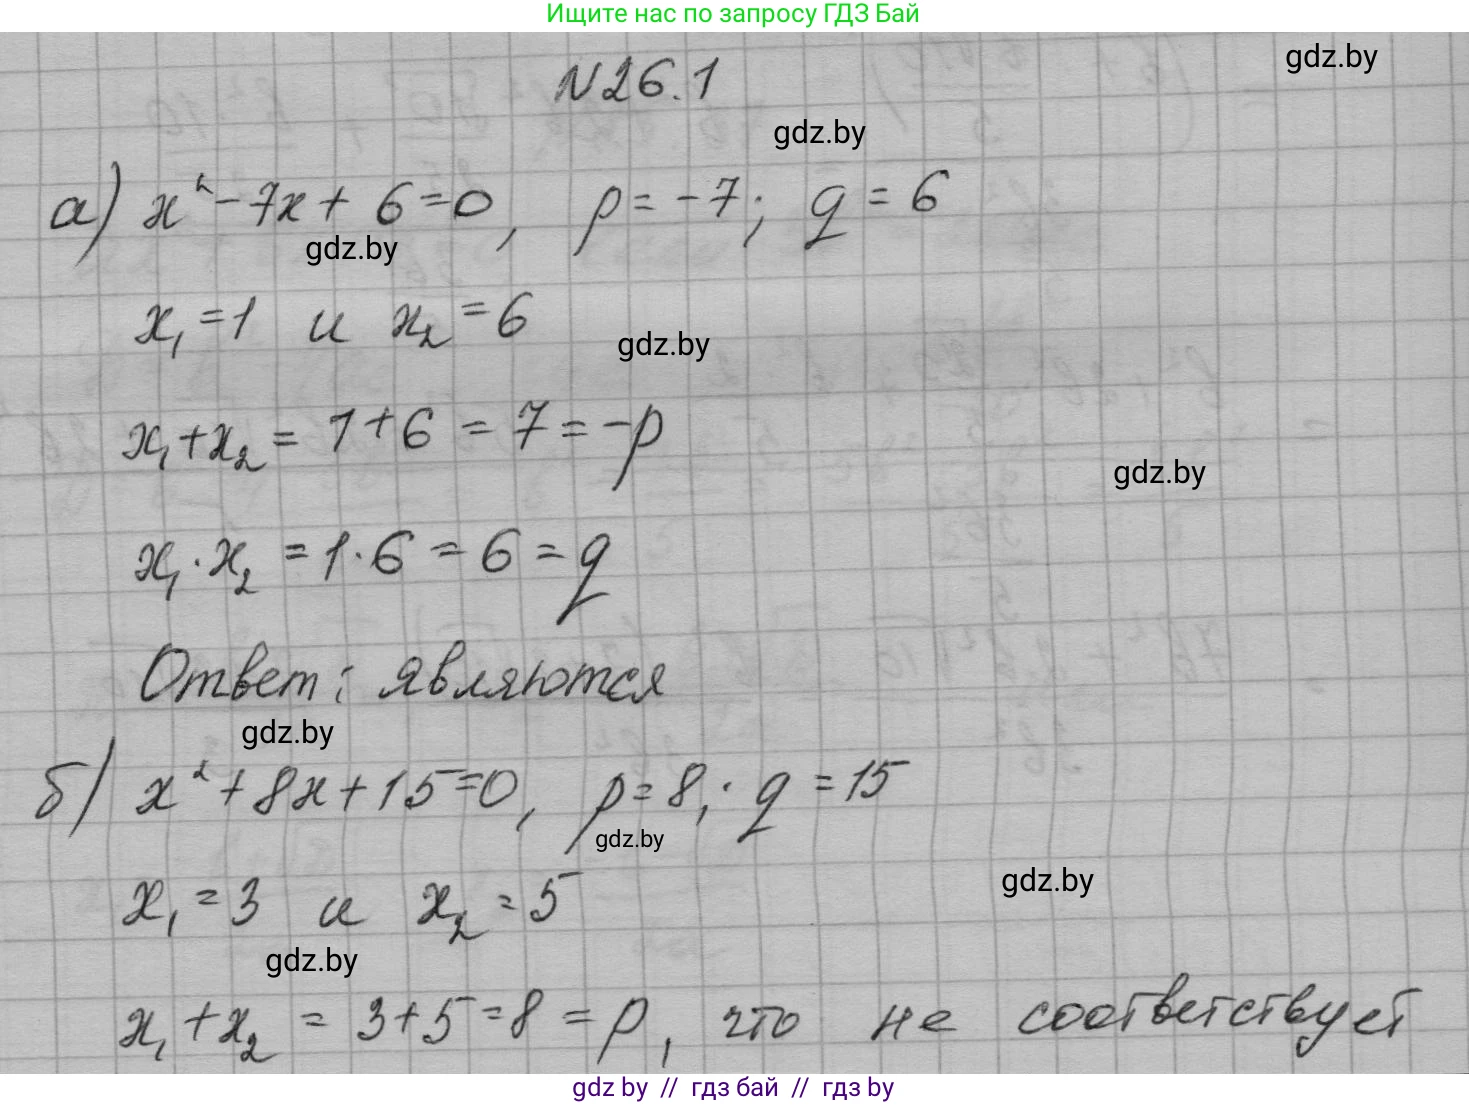 Ищите нас по запросу ГДЗ Бай
gdz.by
N26.1
gdz.by
а) x² - 7x + 6 = 0, p = -7; q = 6
gdz.by
x₁ = 1 и x₂ = 6
gdz.by
x₁ + x₂ = 1 + 6 = 7 = -p
gdz.by
x₁ · x₂ = 1 · 6 = 6 = q
Ответ: являются
gdz.by
б) x² + 8x + 15 = 0, p = 8; q = 15
gdz.by
x₁ = 3 и x₂ = 5
gdz.by
gdz.by
x₁ + x₂ = 3 + 5 = 8 = p, что не соответствует
gdz by // гдз бай // гдз by